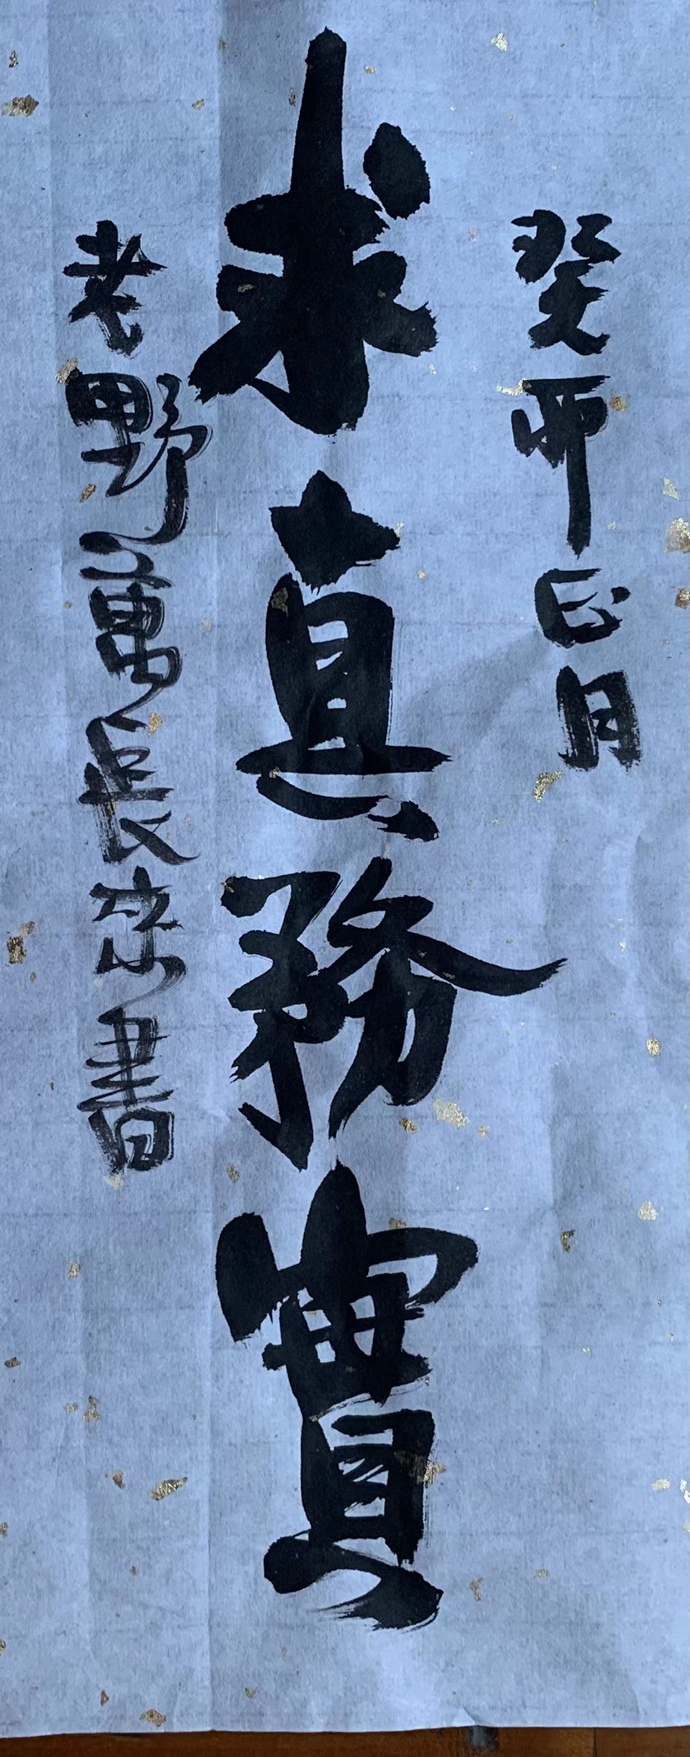 癸酉正月
求真務實
老野萬長宗書